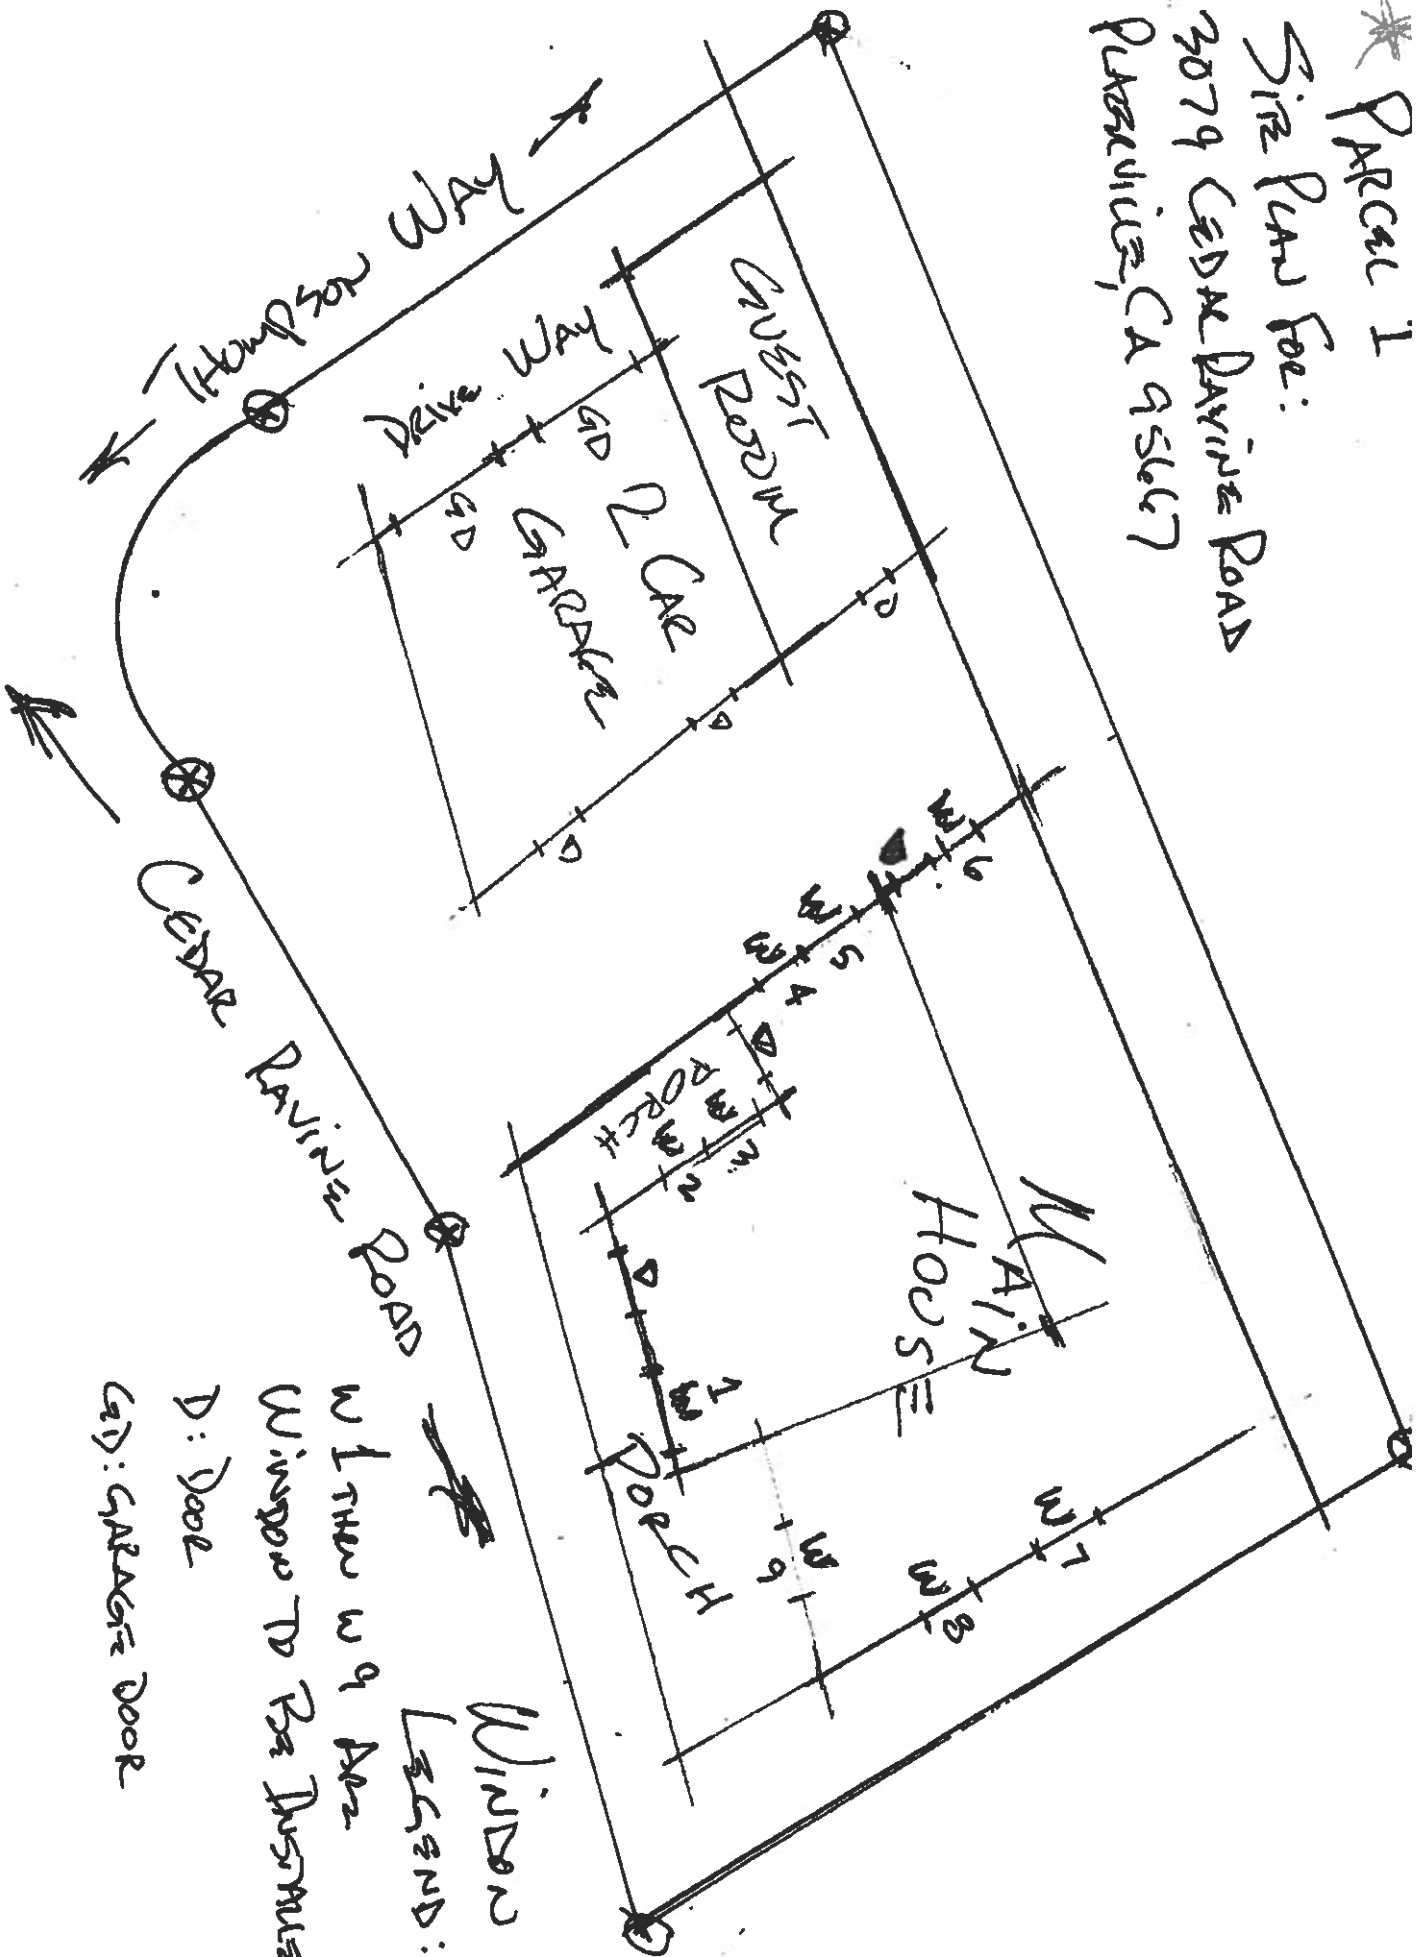 PARCEL 1
SITE PLAN FOR:
3079 CEDAR RAVINE ROAD
PLACERVILLE, CA 95667
THOMPSON WAY
DRIVE WAY
GUEST
ROOM
GD
GD
2 CAR
GARAGE
D
D
D
W 6
W 5
W 4
D
PORCH
W 3
W 2
D
W 1
MAIN
HOUSE
PORCH
W 7
W 8
W 9
CEDAR RAVINE ROAD
WINDOW
LEGEND:
W 1 THRU W 9 ARE
WINDOW TO BE INSTALLE
D: DOOR
GD: GARAGE DOOR